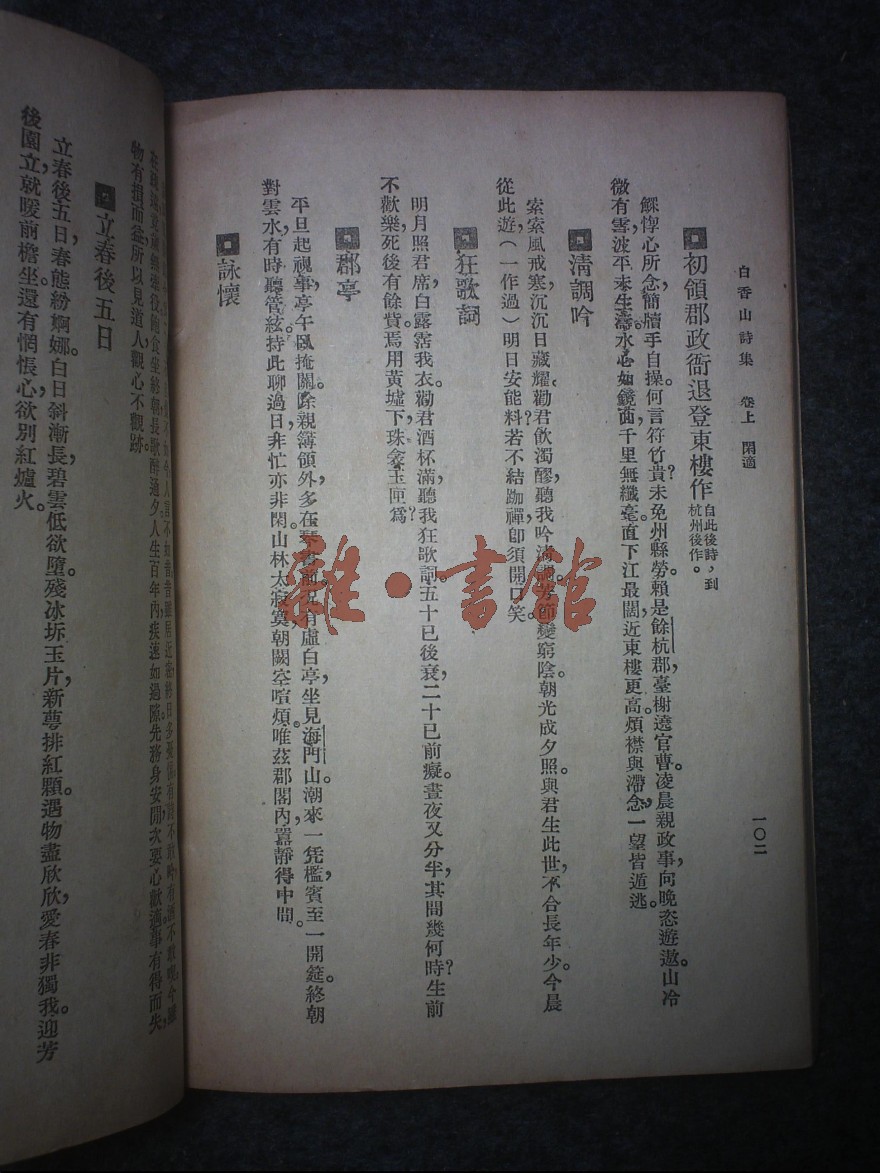 白香山詩集 卷上 閑適
一〇二
初領郡政衙退登東樓作 自此後詩，到
杭州後作。
鰥惸心所念，簡牘手自操。何言符竹貴？未免州縣勞。賴是餘杭郡，臺榭遶官曹。凌晨親政事，向晚恣遊遨。山冷
微有雪，波平未生濤。水心如鏡面，千里無纖毫。直下江最闊，近東樓更高。煩襟與滯念，一望皆遁逃。
清調吟
索索風戒寒，沉沉日藏耀。勸君飲濁醪，聽我吟清調。芳節變窮陰，朝光成夕照。與君生此世，不合長年少。今晨
從此遊（一作過）明日安能料？若不結跏禪，卽須開口笑。
狂歌詞
明月照君席，白露霑我衣。勸君酒杯滿，聽我狂歌詞。五十已後衰，二十已前癡。晝夜又分半，其間幾何時？生前
不歡樂，死後有餘貲。焉用黃墟下，珠衾玉匣爲？
郡亭
平旦起視事，亭午臥掩關。除親簿領外，多在琴書前。況有虛白亭，坐見海門山。潮來一凭檻，賓至一開筵。終朝
對雲水，有時聽管絃。持此聊過日，非忙亦非閑。山林太寂寞，朝闕空喧煩。唯茲郡閣內，囂靜得中間。
詠懷
物有損而益。所以見道人，觀心不觀跡。
立春後五日
立春後五日，春態紛婀娜。白日斜漸長，碧雲低欲墮。殘冰坼玉片，新萼排紅顆。遇物盡欣欣，愛春非獨我。迎芳
後園立，就暖前檐坐。還有惆悵心，欲別紅爐火。
雜·書館